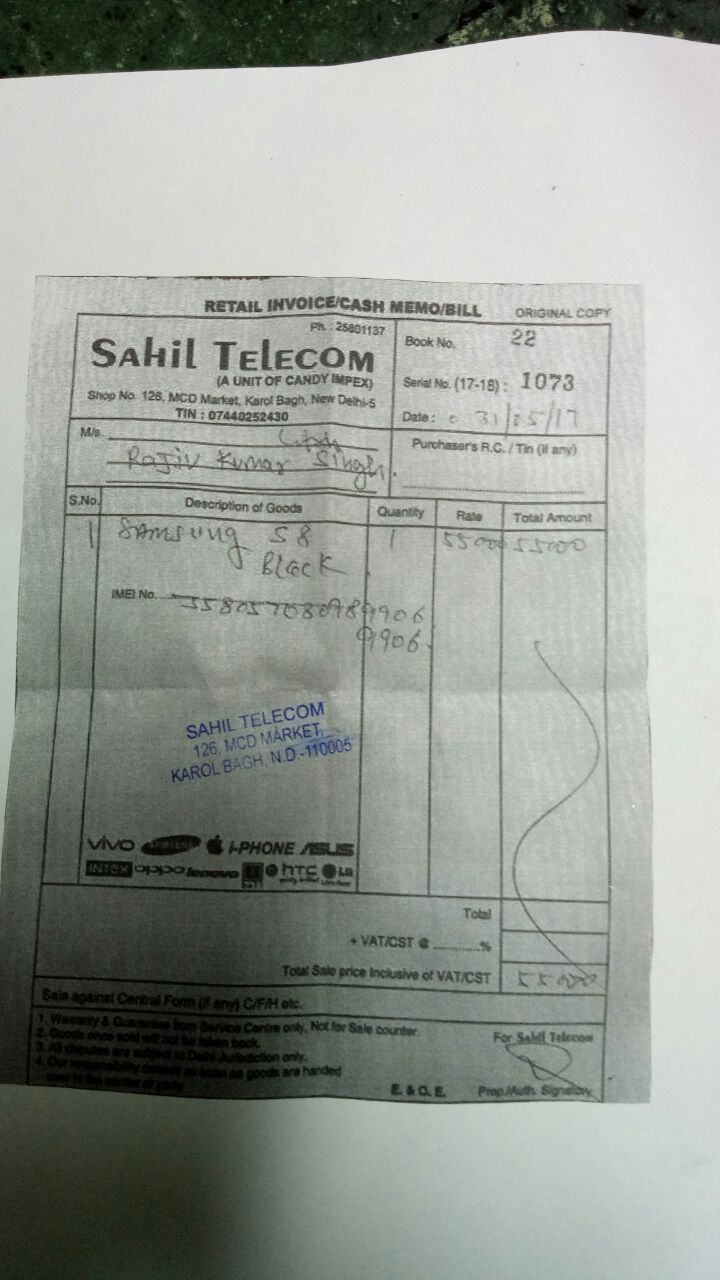 RETAIL INVOICE/CASH MEMO/BILL ORIGINAL COPY
Ph. : 25801137
SAHIL TELECOM
(A UNIT OF CANDY IMPEX)
Shop No. 126, MCD Market, Karol Bagh, New Delhi-5
TIN : 07440252430
Book No. 22
Serial No. (17-18) : 1073
Date : 31/05/17
M/s.
Rajiv Kumar Singh
Purchaser's R.C. / Tin (if any)
S.No. Description of Goods Quantity Rate Total Amount
1 SAMSUNG S8 1 55000 55000
Black
IMEI No.
9906
SAHIL TELECOM
126, MCD MARKET,
KAROL BAGH, N.D.-110005
vivo SAMSUNG i-PHONE ASUS
INTEX oppo lenovo htc LG
Total
+ VAT/CST @ ...........%
Total Sale price Inclusive of VAT/CST 55000
Sale against Central Form (if any) C/F/H etc.
1. Warranty & Guarantee from Service Centre only, Not for Sale counter.
2. Goods once sold will not be taken back.
3. All disputes are subject to Delhi Jurisdiction only.
4. Our responsibility ceases as soon as goods are handed
over to the carrier or party
For Sahil Telecom
E. & O. E. Prop./Auth. Signatory